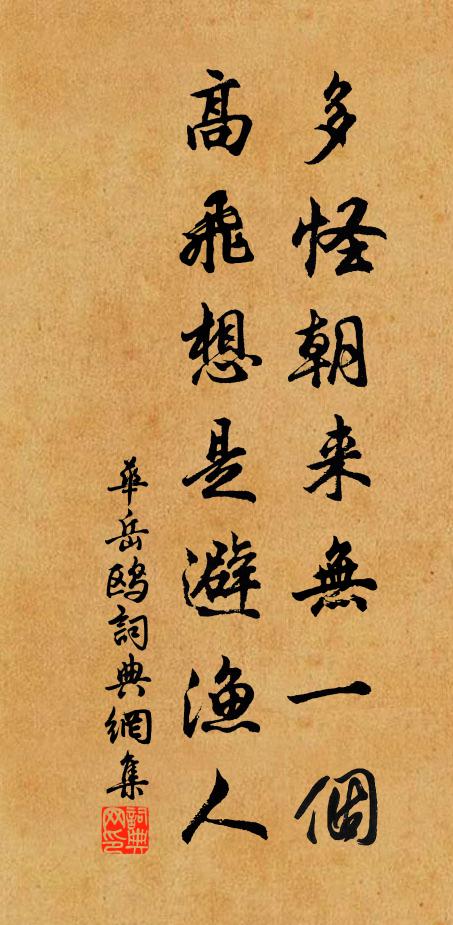 多怪朝来無一個
高飛想是避渔人
華岳鷗詞典網集
詞典
网印